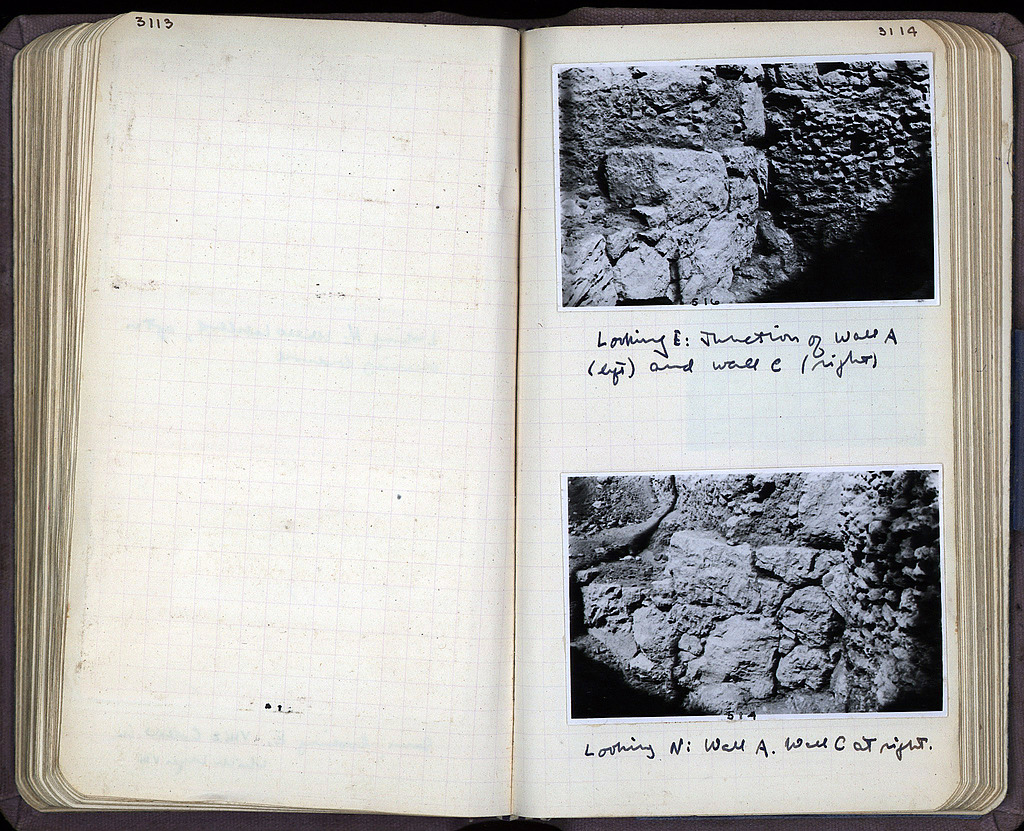 3113
3114
516
Looking E: Junction of Wall A
(left) and wall C (right)
514
Looking N: Wall A. Wall C at right.